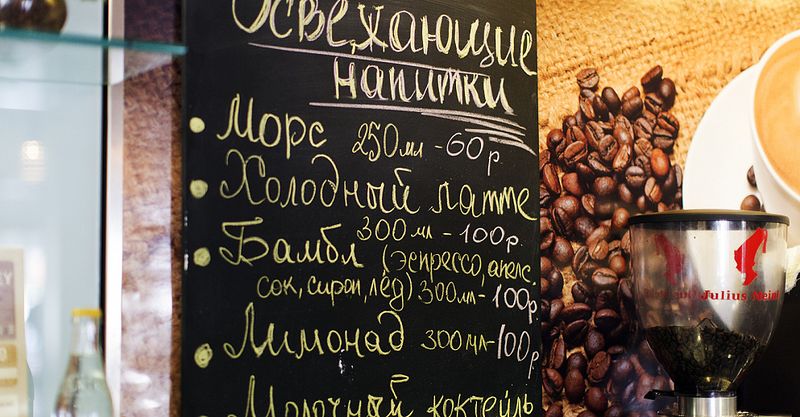 Освежающие
напитки
• Морс 250мл - 60р.
• Холодный латте
300мл - 100р.
• Бамбл (эспрессо, апельс.
сок, сироп, лёд) 300мл - 100р.
• Лимонад 300мл - 100р.
• Молочный коктейль
Julius Meinl